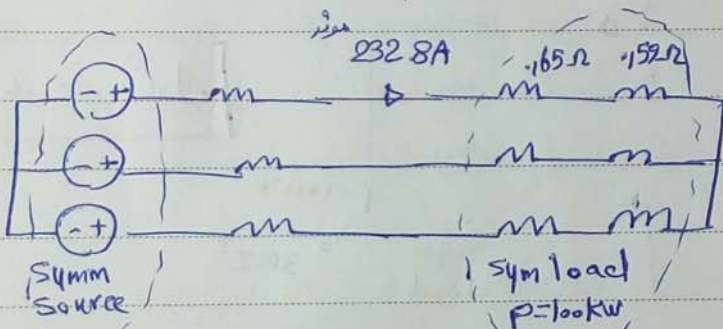 موثر
232.8A ,65Ω ,59Ω
- +
- +
- +
Symm
Source
Sym load
P=100kW